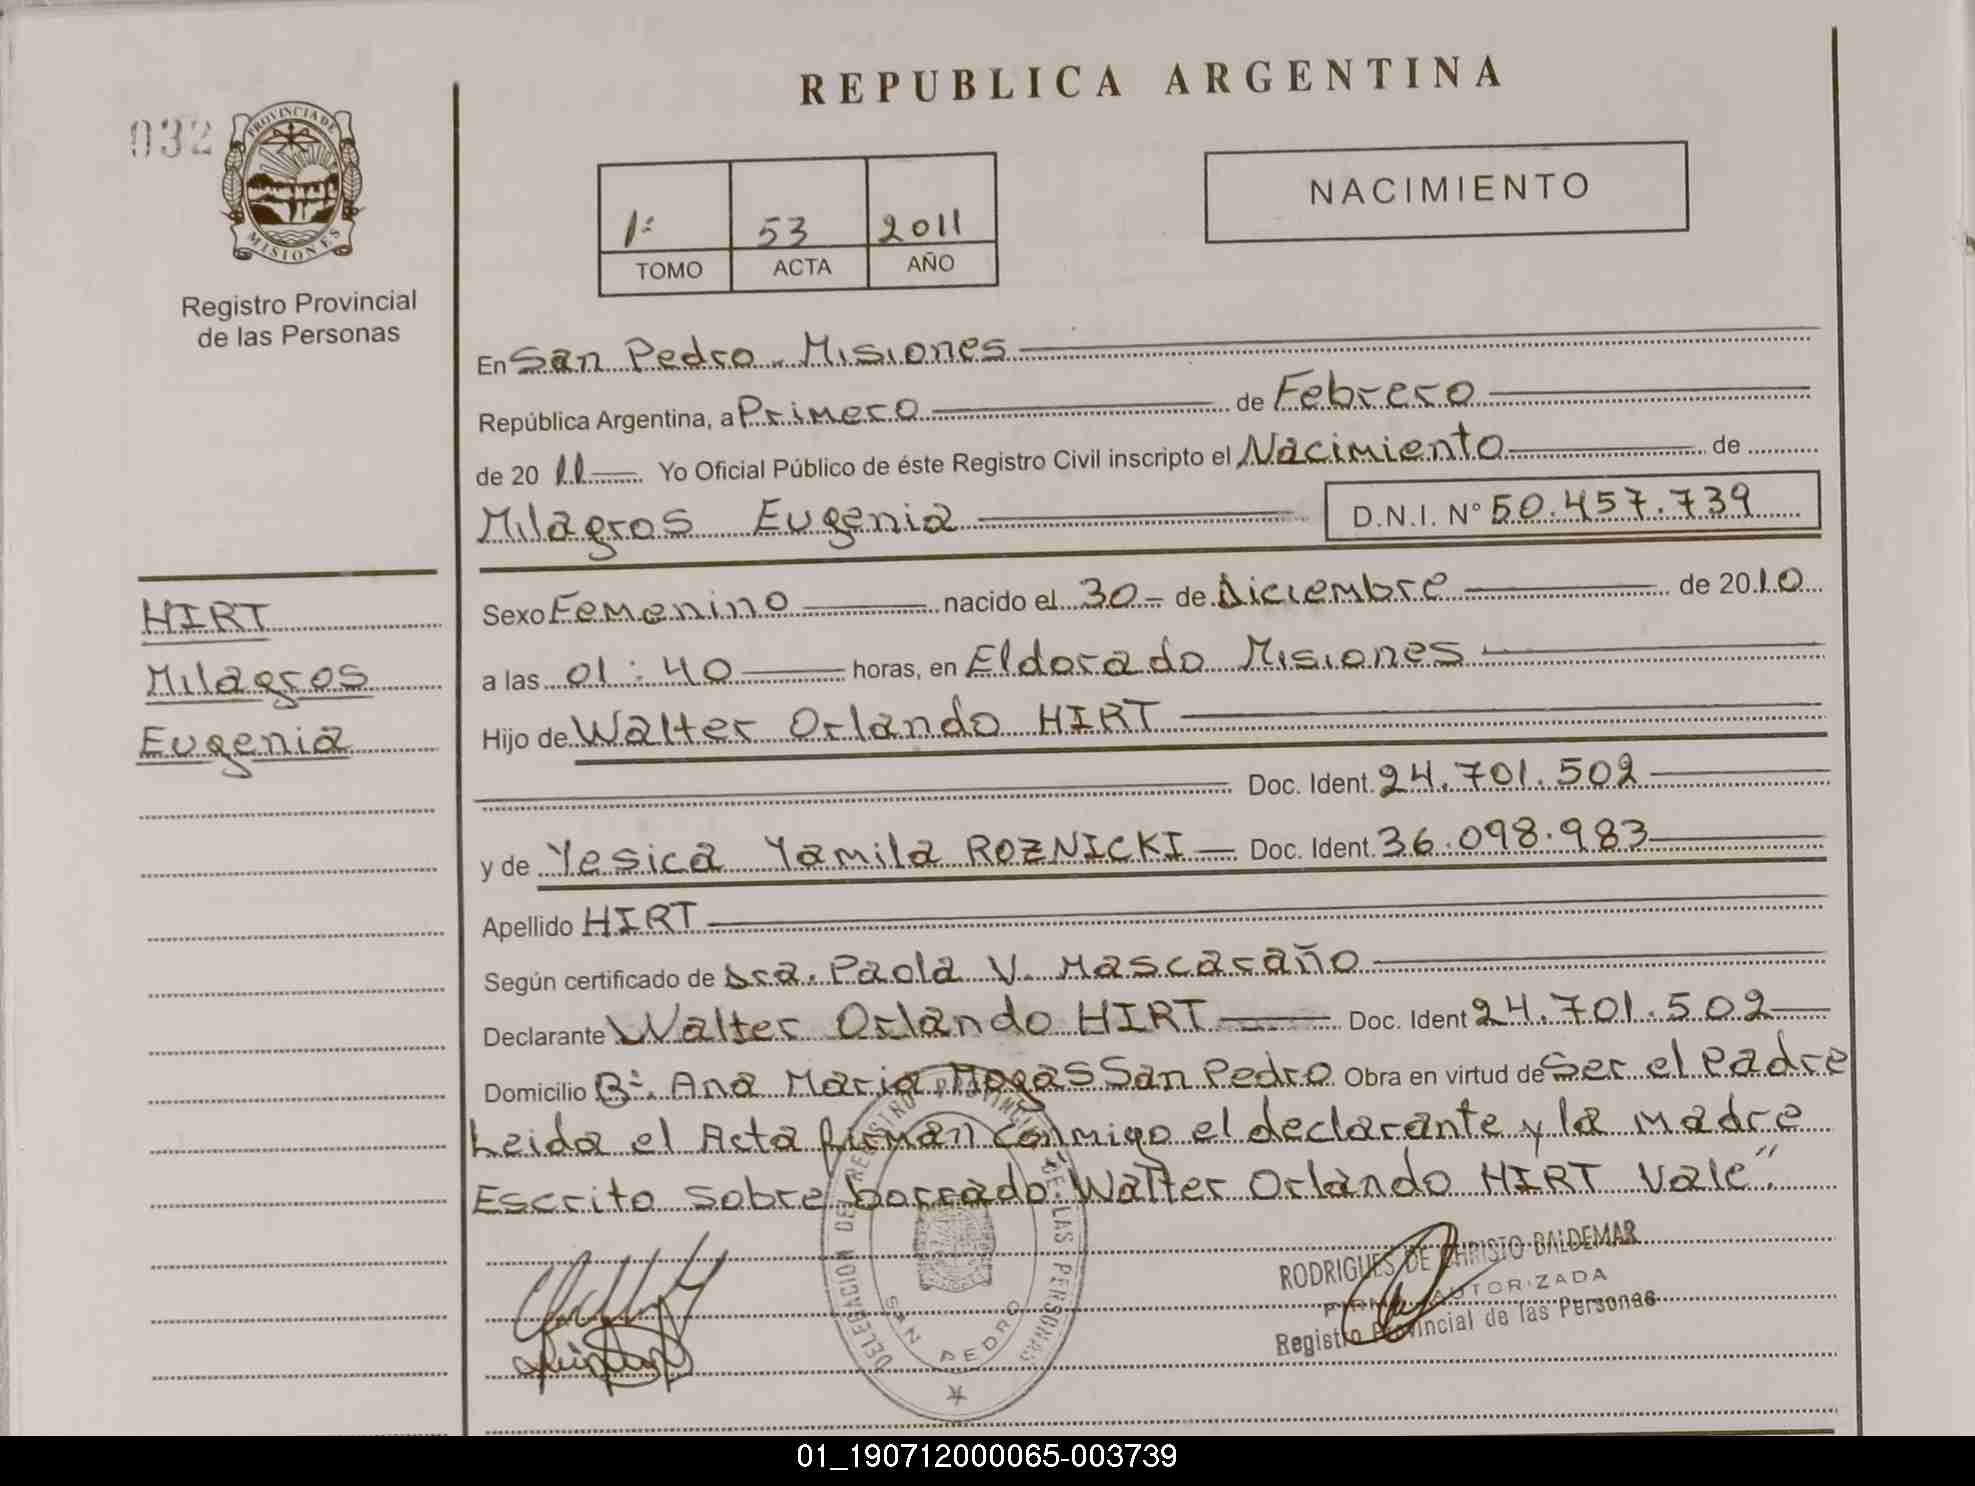 REPUBLICA ARGENTINA
032
PROVINCIA DE
MISIONES
Registro Provincial
de las Personas
1º 53 2011
TOMO ACTA AÑO
NACIMIENTO
En San Pedro Misiones
República Argentina, a Primero de Febrero
de 2011 Yo Oficial Público de éste Registro Civil inscripto el Nacimiento de
Milagros Eugenia D.N.I. Nº 50.457.739
HIRT
Milagros
Eugenia
Sexo Femenino nacido el 30 de Diciembre de 2010
a las 01:40 horas, en Eldorado Misiones
Hijo de Walter Orlando HIRT
Doc. Ident. 24.701.502
y de Yesica Yamila ROZNICKI Doc. Ident. 36.098.983
Apellido HIRT
Según certificado de Dra. Paola V. Mascaraño
Declarante Walter Orlando HIRT Doc. Ident 24.701.502
Domicilio Bº. Ana Maria Mogas San Pedro Obra en virtud de Ser el Padre
Leida el Acta firman conmigo el declarante y la madre
Escrito sobre borrado: Walter Orlando HIRT Vale"
DELEGACION DEL REGISTRO PROVINCIAL DE LAS PERSONAS
SAN PEDRO
RODRIGUES DE CHRISTO BALDEMAR
FIRMA AUTORIZADA
Registro Provincial de las Personas
01_190712000065-003739